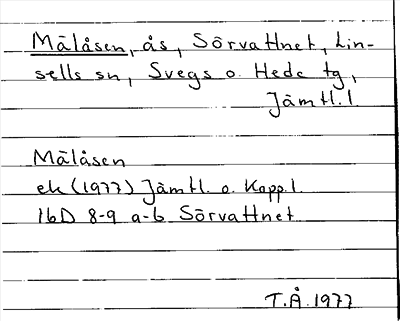 Målåsen, ås, Sörvattnet, Lin-
sells sn, Svegs o. Hede tg,
Jämtl. l
Målåsen
ek (1977) Jämtl. o. Kopp. l.
16D 8-9 a-b Sörvattnet
T.Å. 1977